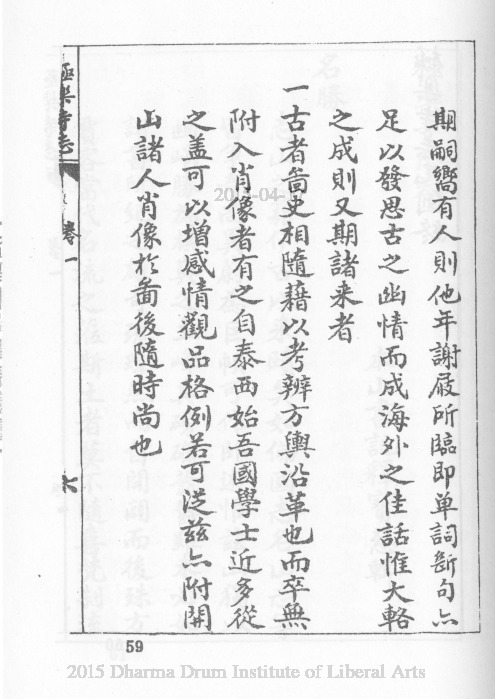 期嗣嚮有人則他年謝屐所臨即单詞斷句亦
足以發思古之幽情而成海外之佳話惟大輅
之成則又期諸来者
一古者啚史相隨藉以考辨方輿沿革也而卒無
附入肖像者有之自泰西始吾國學士近多從
之盖可以增感情觀品格例若可從兹亦附開
山諸人肖像於啚後隨時尚也
極樂寺志
卷一
六
59
2015 Dharma Drum Institute of Liberal Arts